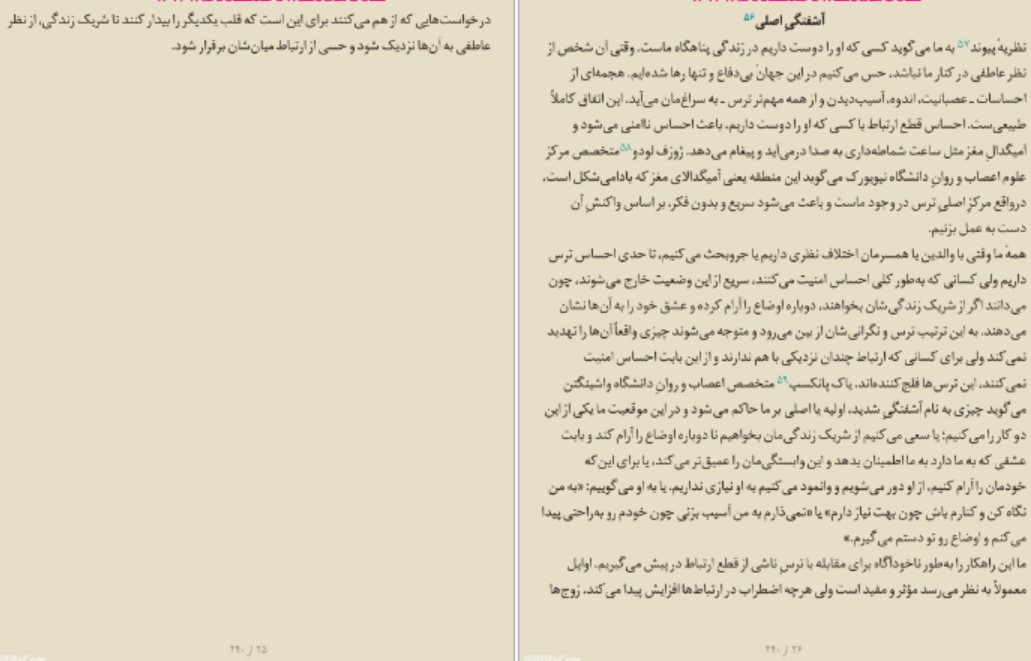 درخواست‌هایی که از هم می‌کنند برای این است که قلب یکدیگر را بیدار کنند تا شریک زندگی، از نظر
عاطفی به آن‌ها نزدیک شود و حسی از ارتباط میان‌شان برقرار شود.
۲۵ / ۲۴۰
آشفتگیِ اصلی۵۶
نظریهٔ پیوند۵۷ به ما می‌گوید کسی که او را دوست داریم در زندگی پناهگاه ماست. وقتی آن شخص از
نظر عاطفی در کنار ما نباشد، حس می‌کنیم در این جهانْ بی‌دفاع و تنها رها شده‌ایم. هجمه‌ای از
احساسات ـ عصبانیت، اندوه، آسیب‌دیدن و از همه مهم‌تر ترس ـ به سراغ‌مان می‌آید. این اتفاق کاملاً
طبیعی‌ست. احساس قطع ارتباط با کسی که او را دوست داریم، باعث احساس ناامنی می‌شود و
آمیگدالِ مغز مثل ساعت شماطه‌داری به صدا درمی‌آید و پیغام می‌دهد. ژوزف لودو۵۸ متخصص مرکز
علوم اعصاب و روانِ دانشگاه نیویورک می‌گوید این منطقه یعنی آمیگدالای مغز که بادامی‌شکل است،
درواقع مرکزِ اصلیِ ترس در وجود ماست و باعث می‌شود سریع و بدون فکر، بر اساس واکنشِ آن
دست به عمل بزنیم.
همهٔ ما وقتی با والدین یا همسرمان اختلاف نظری داریم یا جروبحث می‌کنیم، تا حدی احساس ترس
داریم ولی کسانی که به‌طور کلی احساس امنیت می‌کنند، سریع از این وضعیت خارج می‌شوند، چون
می‌دانند اگر از شریک زندگی‌شان بخواهند، دوباره اوضاع را آرام کرده و عشق خود را به آن‌ها نشان
می‌دهند. به این ترتیب ترس و نگرانی‌شان از بین می‌رود و متوجه می‌شوند چیزی واقعاً آن‌ها را تهدید
نمی‌کند ولی برای کسانی که ارتباط چندان نزدیکی با هم ندارند و از این بابت احساس امنیت
نمی‌کنند، این ترس‌ها فلج‌کننده‌اند. یاک پانکسپ۵۹ متخصص اعصاب و روانِ دانشگاه واشینگتن
می‌گوید چیزی به نام آشفتگیِ شدید، اولیه یا اصلی بر ما حاکم می‌شود و در این موقعیت ما یکی از این
دو کار را می‌کنیم؛ یا سعی می‌کنیم از شریک زندگی‌مان بخواهیم تا دوباره اوضاع را آرام کند و بابت
عشقی که به ما دارد به ما اطمینان بدهد و این وابستگی‌مان را عمیق‌تر می‌کند، یا برای این‌که
خودمان را آرام کنیم، از او دور می‌شویم و وانمود می‌کنیم به او نیازی نداریم. یا به او می‌گوییم: «به من
نگاه کن و کنارم باش چون بهت نیاز دارم» یا «نمی‌ذارم به من آسیب بزنی چون خودم رو به‌راحتی پیدا
می‌کنم و اوضاع رو تو دستم می‌گیرم.»
ما این راهکار را به‌طور ناخودآگاه برای مقابله با ترسِ ناشی از قطع ارتباط در پیش می‌گیریم. اوایل
معمولاً به نظر می‌رسد مؤثر و مفید است ولی هرچه اضطراب در ارتباط‌ها افزایش پیدا می‌کند، زوج‌ها
۲۶ / ۲۴۰